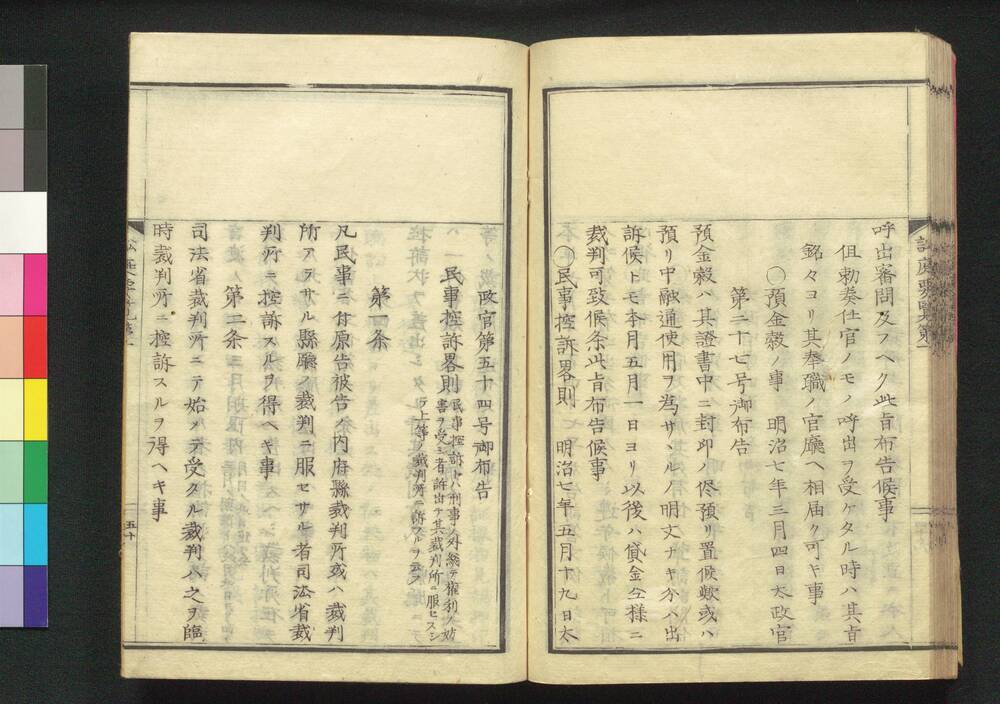 呼出審問及フヘク此旨布告候事
但勅奏任官ノモノ呼出ヲ受ケタル時ハ其旨
銘々ヨリ其奉職ノ官廳ヘ相届ク可キ事
○預金穀ノ事　明治七年三月四日太政官
第二十七号御布告
預金穀ハ其證書中ニ封印ノ侭預リ置候歟或ハ
預リ中融通使用ヲ為サヽルノ明文ナキ分ハ出
訴候トモ本月五月一日ヨリ以後ハ貸金仝様ニ
裁判可致候条此旨布告候事
○民事控訴畧則　明治七年五月十九日太
政官第五十四号御布告
民事控訴畧則
民事控訴トハ刑事ノ外総テ権利ノ妨
害ヲ受ル者訴出テ其裁判所ニ服セスシ
テ上等ノ裁判所ヘ訴スルヲ云フ
第一条
凡民事ニ付原告被告人内府縣裁判所或ハ裁判
所アラサル縣廳ノ裁判ニ服セサル者司法省裁
判所ニ控訴スルヲ得ヘキ事
第二条
司法省裁判所ニテ始メテ受タル裁判ハ之ヲ臨
時裁判所ニ控訴スルヲ得ヘキ事
五十